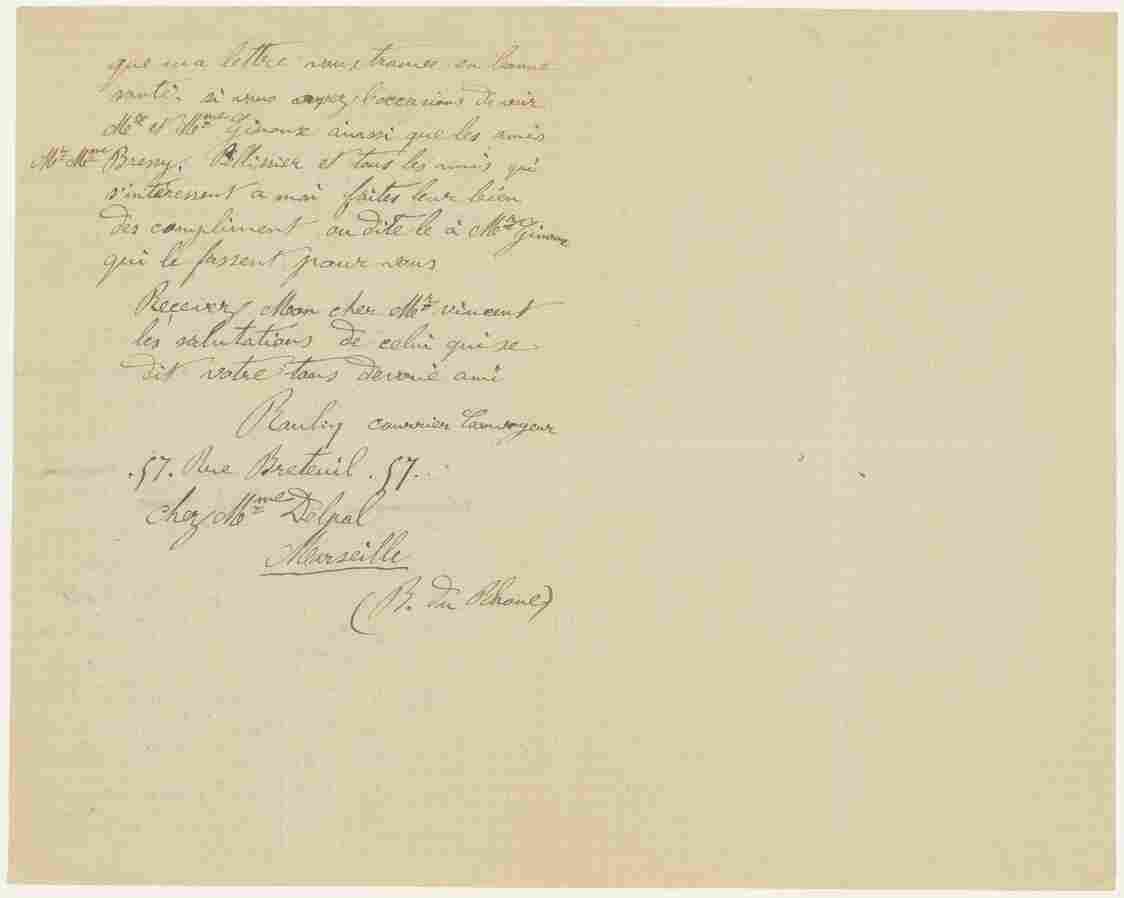 que ma lettre vous trouve en bonne
santé. si vous ayez l'occasions de voir
Mr et Mme Ginoux ainssi que les amis
Mr Mme Bressy. Pellissier et tous les amis qui
s'intéressent a moi faites leur bien
des compliment ou dite le à Mr Ginoux
qui le fassent pour vous
Recevez Mon cher Mr vincent
les salutations de celui qui se
dit votre tous devoué ami
Roulin courrier Convoyeur
.57. Rue Breteuil .57.
chez Mme Delpal
Marseille
(B. du Rhone)